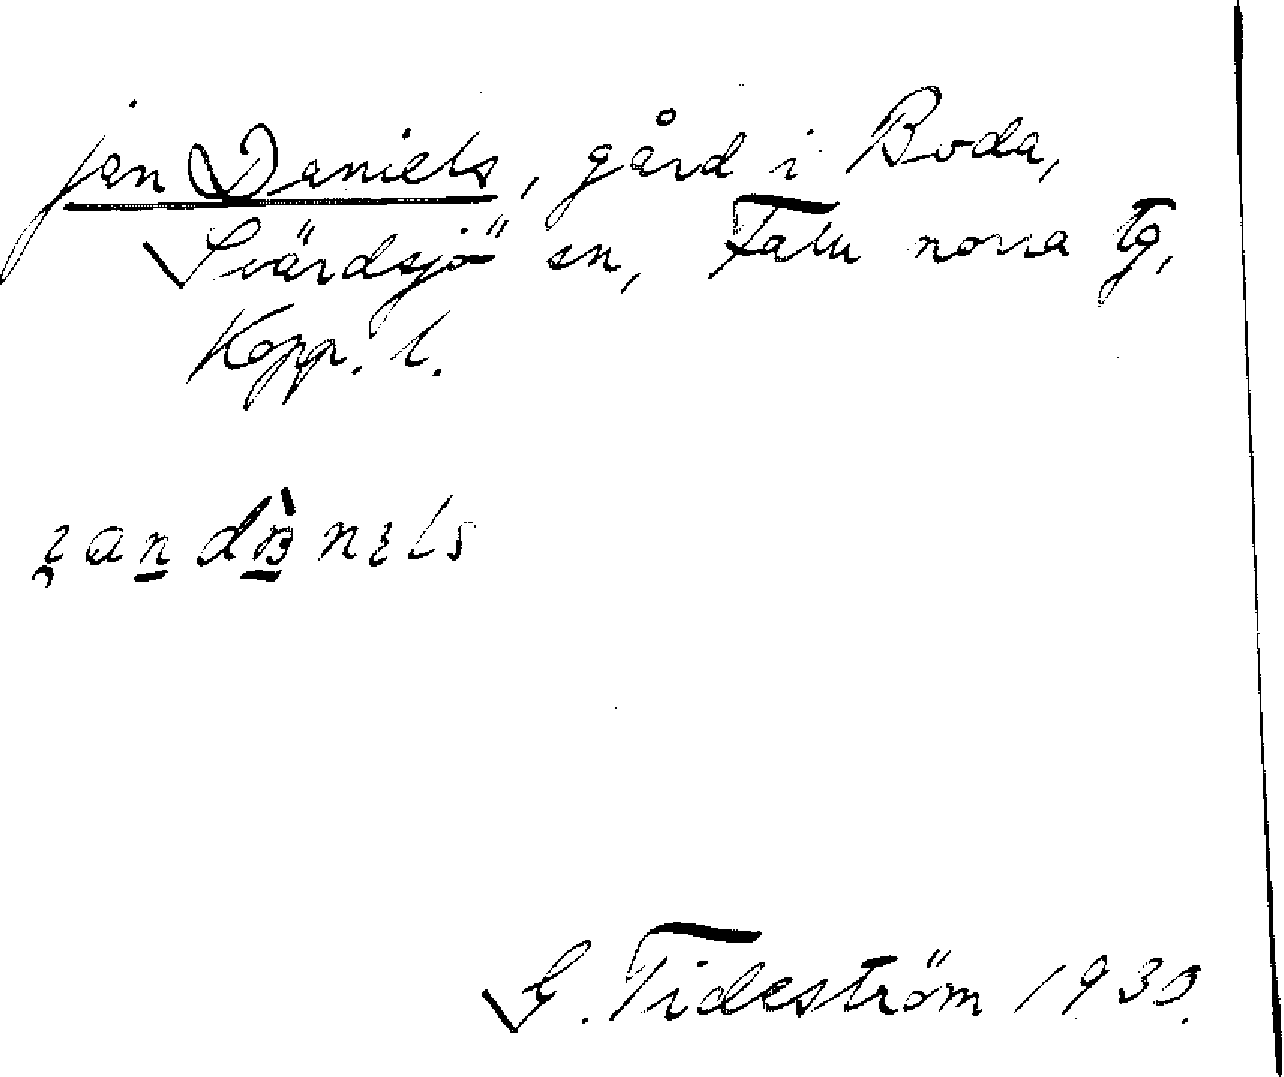 jan Daniels, gård i Boda,
Svärdsjö sn, Falu norra tg,
Kopp. l.
G. Tideström 1930.